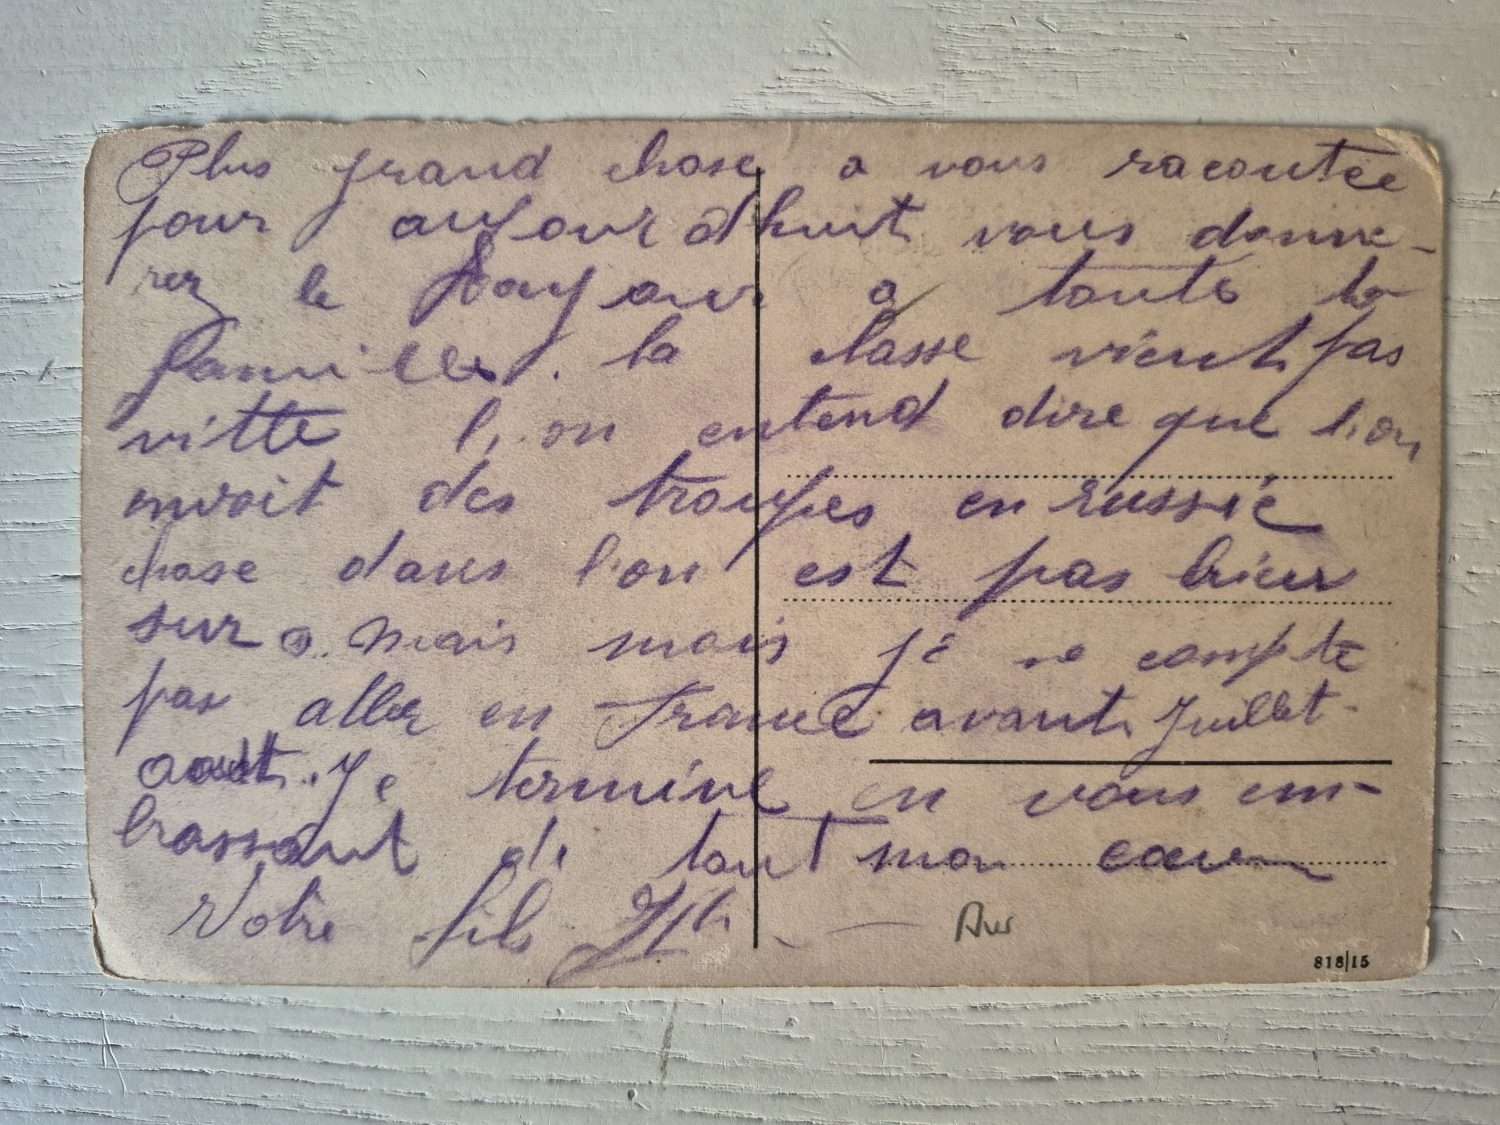 Plus grand chose a vous racontée
pour aujourd'huit vous donne-
rez le bonjour a toute la
famille. la classe vient pas
vitte l'on entend dire que l'on
envoit des troupes en russie
chose dans l'on est pas bien
sur. Mais mois je ne compte
pas aller en France avant Juillet-
aout. Je termine en vous em-
brassant de tout mon coeur
Votre fils
818/15